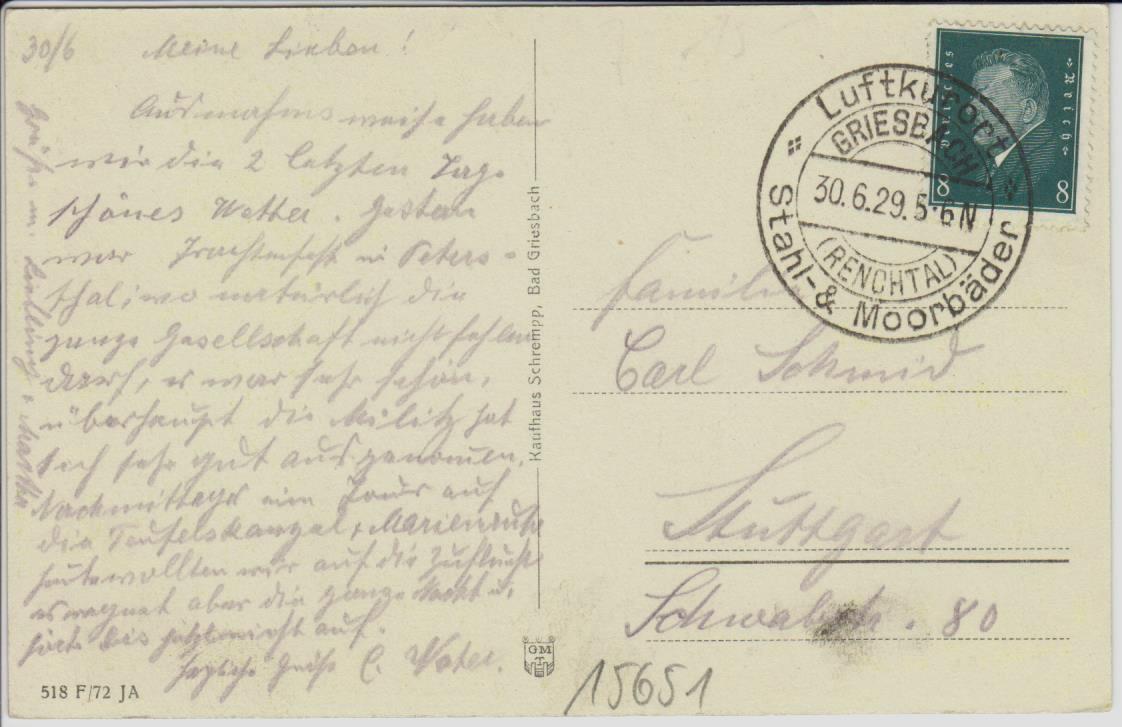 30/6 Meine Lieben!
Ausnahmsweise haben
wir die 2 letzten Tage
schönes Wetter. Gestern
war Trachtenfest in Peters-
thal, wo natürlich die
ganze Gesellschaft nicht fehlen
darf, es war sehr schön,
überhaupt die Miliz hat
sich sehr gut ausgenommen.
Nachmittags eine Tour auf
die Teufelskanzel + Marienruhe
heute wollten wir auf die Zuflucht
es regnet aber die ganze Nacht u.
hört bis jetzt nicht auf.
Herzliche Grüße E. Vater.
Grüße an
518 F/72 JA
Kaufhaus Schrempp, Bad Griesbach
GM
Deutsches Reich
8 8
Luftkurort
GRIESBACH
30.6.29.5-6N
(RENCHTAL)
Stahl- & Moorbäder
Familie
Carl Schmid
Stuttgart
Schwabstr. 80
15651